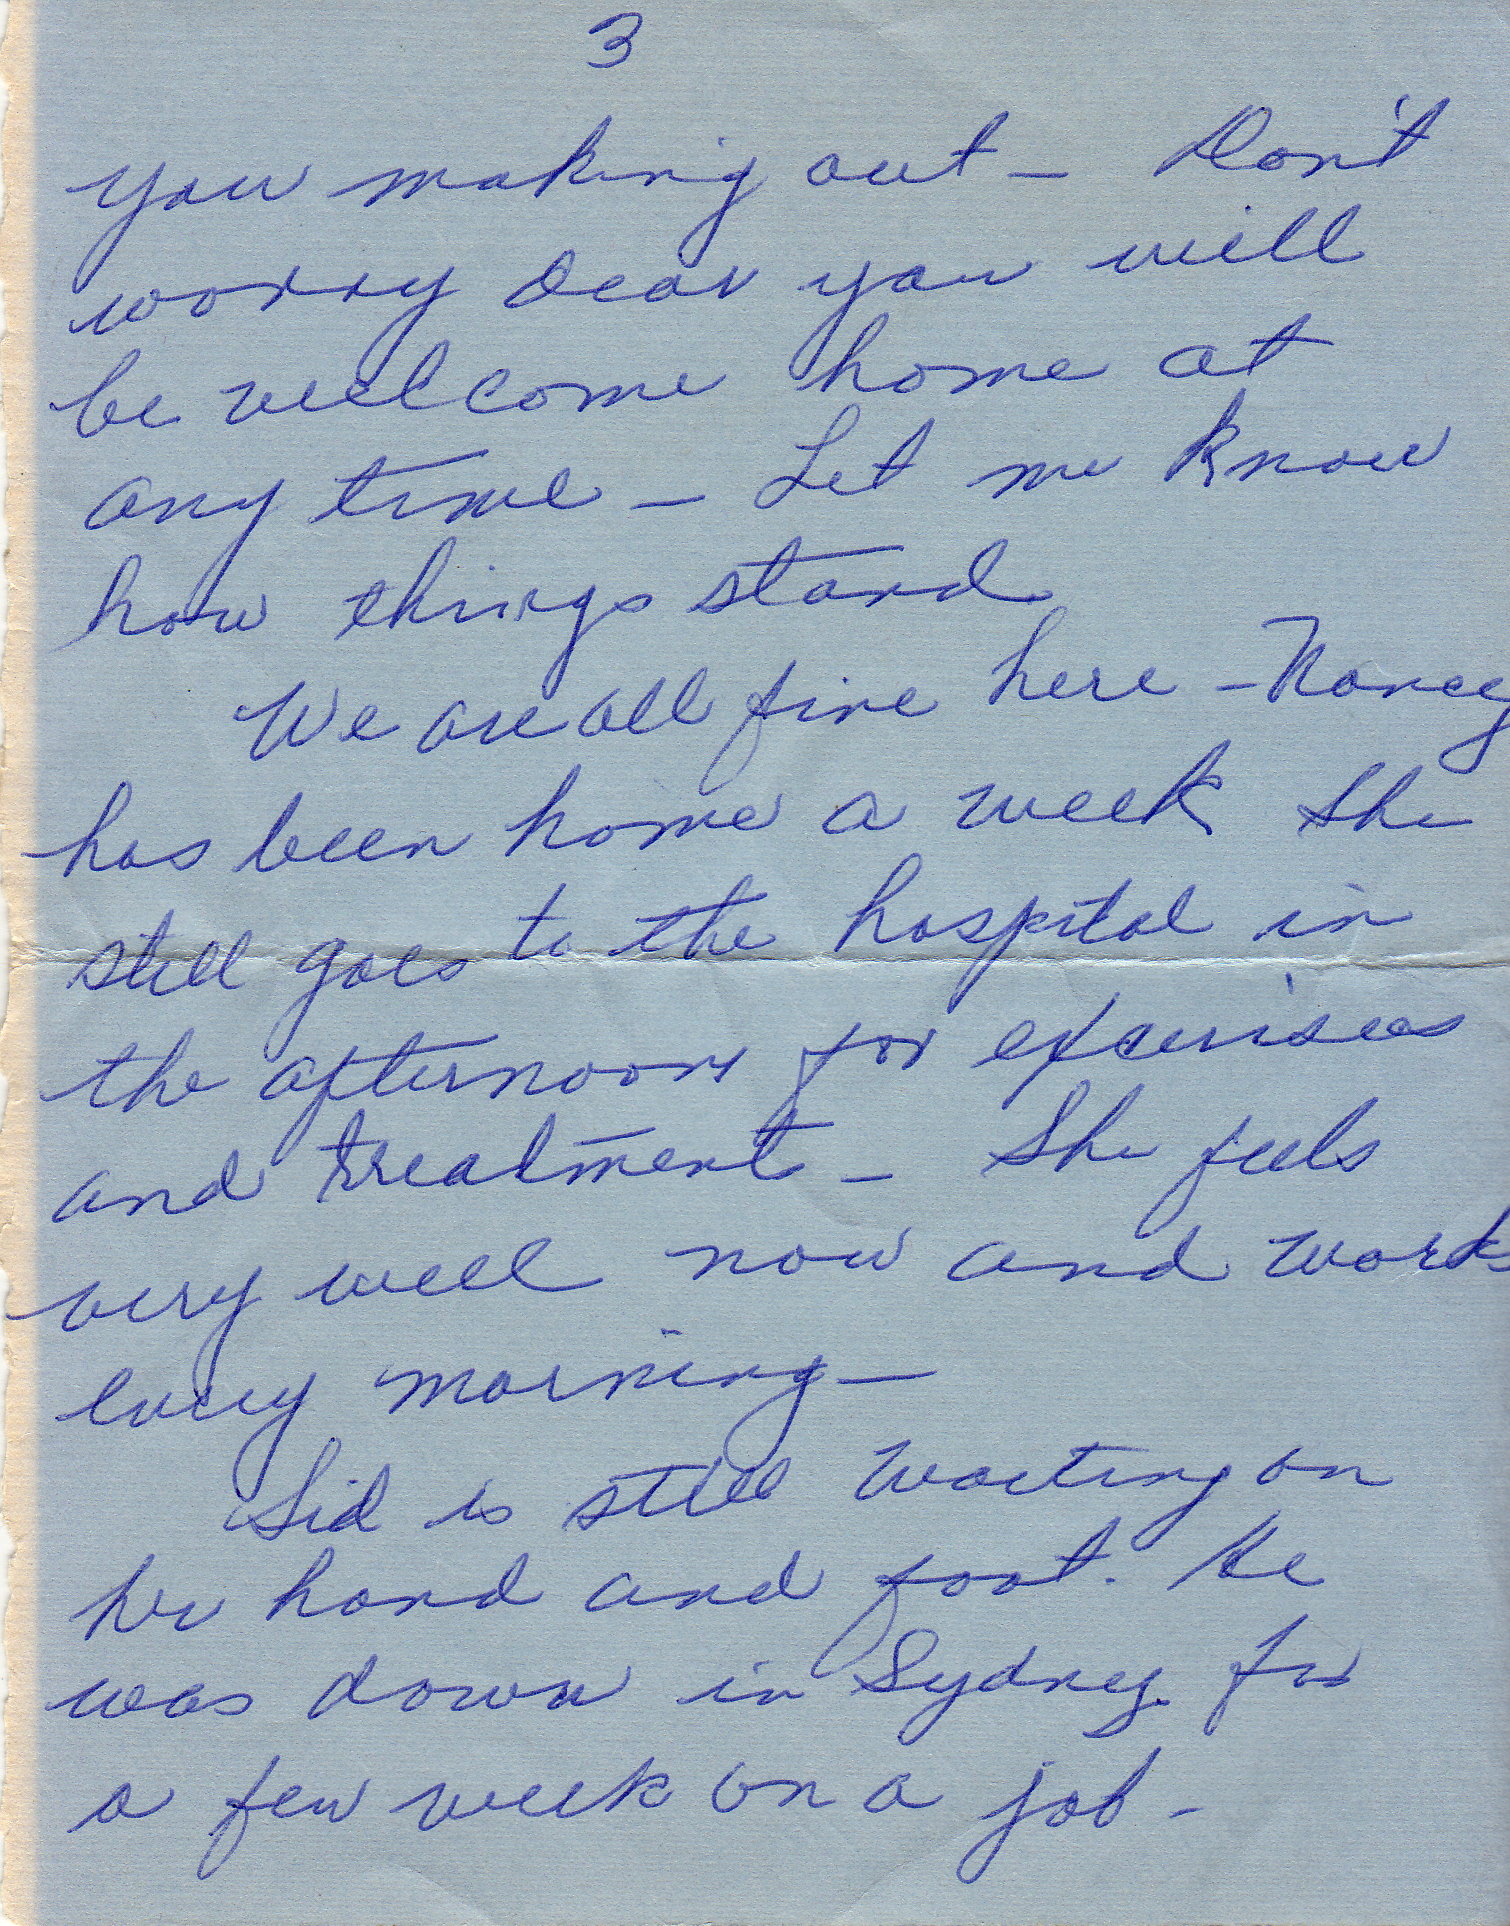 3
you making out - Don't
worry dear you will
be welcome home at
any time - Let me know
how things stand
We are all fine here - Nancy
has been home a week she
still goes to the hospital in
the afternoon for excerises
and treatment - She feels
very well now and works
every morning -
Sid is still waiting on
her hand and foot. He
was down in Sydney for
a few week on a job -